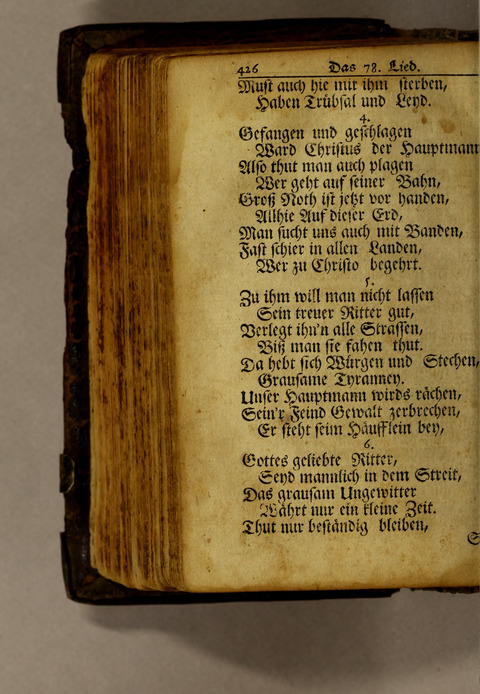 426 Das 78. Lied.
Must auch hie mir ihm sterben,
Haben Trübsal und Leyd.
4.
Gefangen und geschlagen
Ward Christus der Hauptmann
Also thut man auch plagen
Wer geht auf seiner Bahn,
Groß Noth ist jetzt vor handen,
Allhie Auf dieser Erd,
Man sucht uns auch mit Banden,
Fast schier in allen Landen,
Wer zu Christo begehrt.
5.
Zu ihm will man nicht lassen
Sein treuer Ritter gut,
Verlegt ihn'n alle Strassen,
Biß man sie fahen thut.
Da hebt sich Würgen und Stechen,
Grausame Tyranney.
Unser Hauptmann wirds rächen,
Sein'r Feind Gewalt zerbrechen,
Er steht seim Häufflein bey,
6.
Gottes geliebte Ritter,
Seyd mannlich in dem Streit,
Das grausam Ungewitter
Währt nur ein kleine Zeit.
Thut nur beständig bleiben,